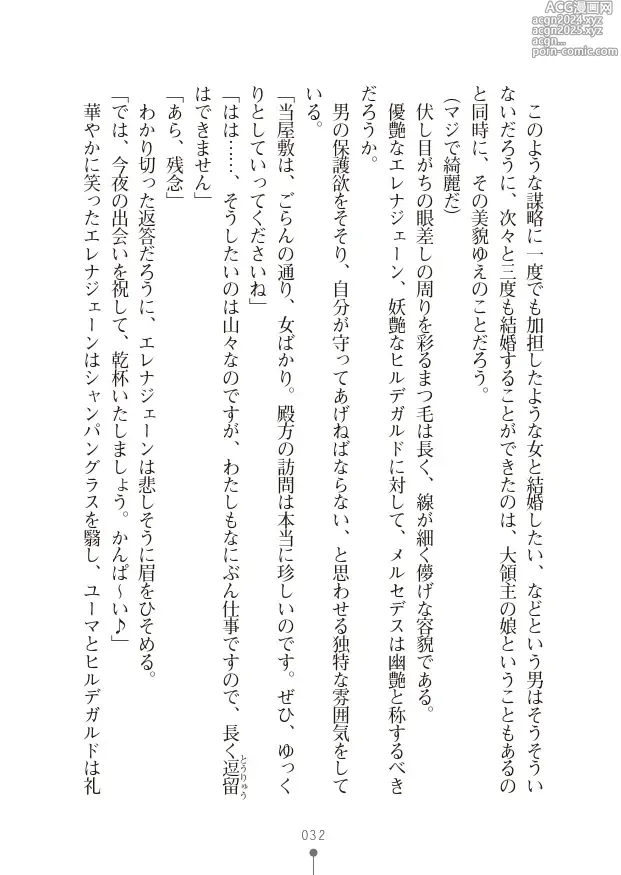 ACG漫画网
acgn2024.xyz
acgn2025.xyz
acgn..
porn-comic.com
このような謀略に一度でも加担したような女と結婚したい、などという男はそうそうい
ないだろうに、次々と三度も結婚することができたのは、大領主の娘ということもあるの
と同時に、その美貌ゆえのことだろう。
(マジで綺麗だ)
伏し目がちの眼差しの周りを彩るまつ毛は長く、線が細く儚げな容貌である。
優艶なエレナジェーン、妖艶なヒルデガルドに対して、メルセデスは幽艶と称するべき
だろうか。
男の保護欲をそそり、自分が守ってあげねばならない、と思わせる独特な雰囲気をして
いる。
「当屋敷は、ごらんの通り、女ばかり。殿方の訪問は本当に珍しいのです。ぜひ、ゆっく
りとしていってくださいね」
「はは……、そうしたいのは山々なのですが、わたしもなにぶん仕事ですので、長く逗留
とうりゅう
はできません」
「あら、残念」
わかり切った返答だろうに、エレナジェーンは悲しそうに眉をひそめる。
「では、今夜の出会いを祝して、乾杯いたしましょう。かんぱ～い♪」
華やかに笑ったエレナジェーンはシャンパングラスを翳し、ユーマとヒルデガルドは礼
032